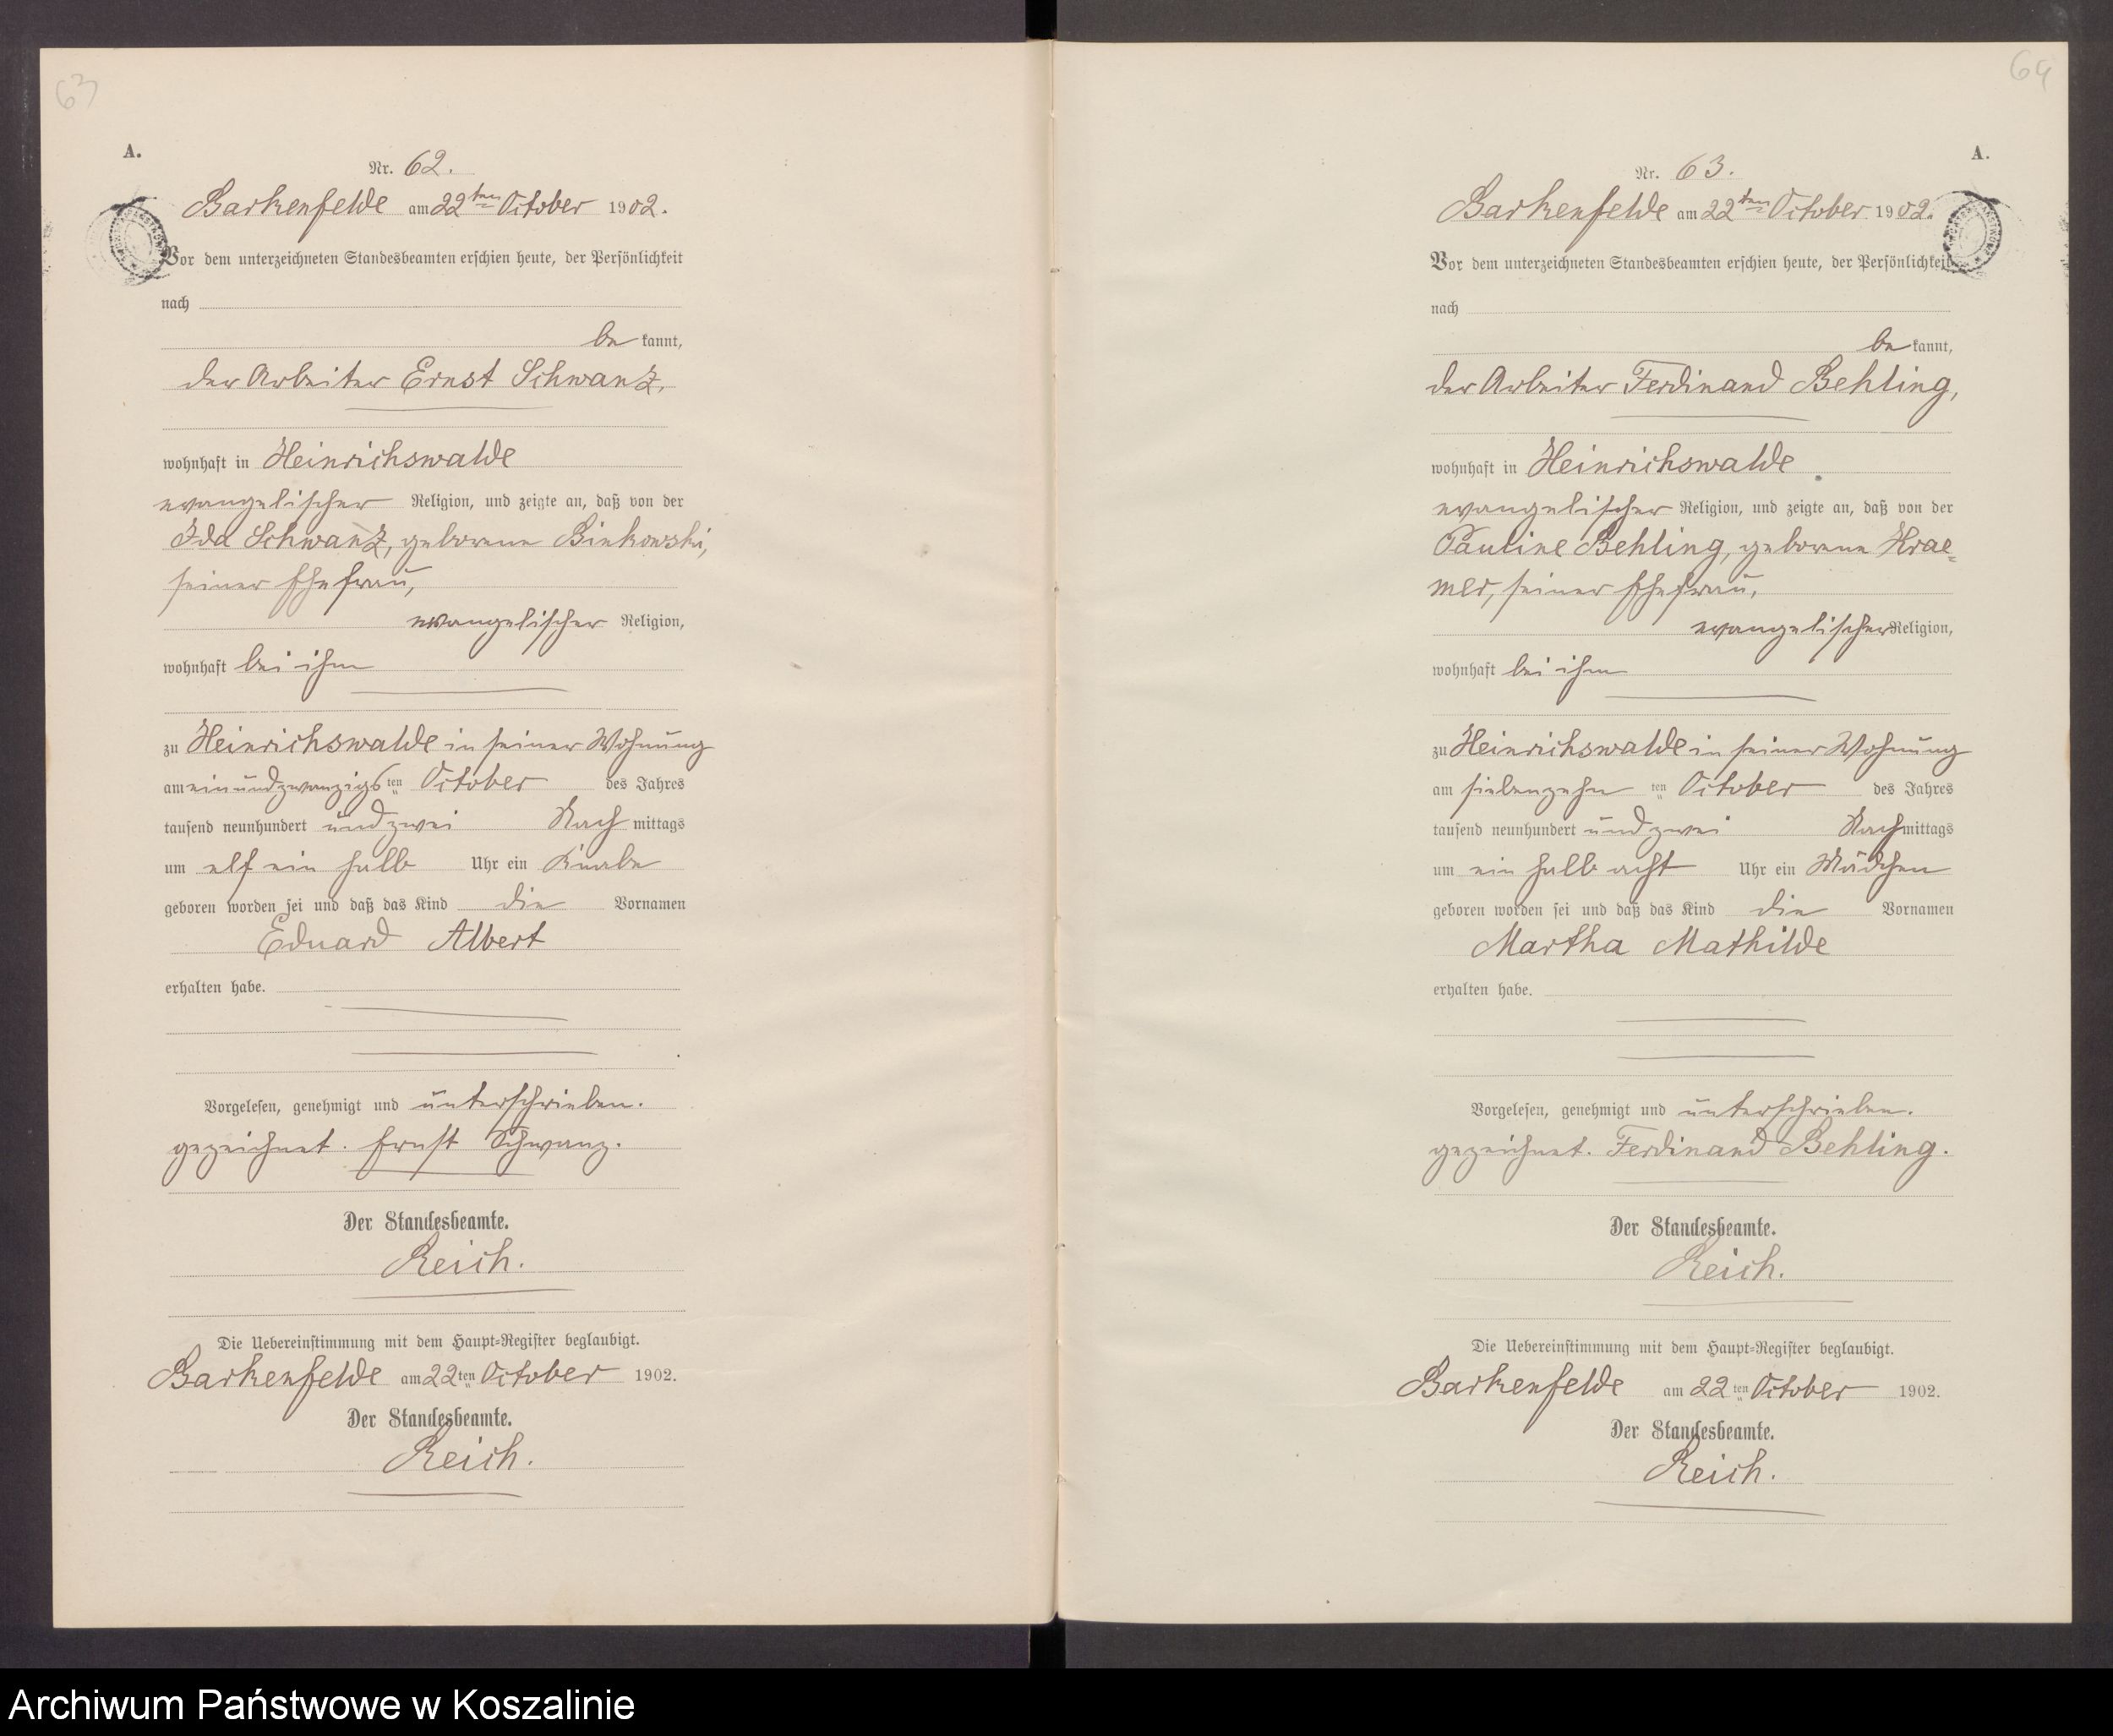 63
A.
Nr. 62.
Barkenfelde am 22ten October 1902.
Vor dem unterzeichneten Standesbeamten erschien heute, der Persönlichkeit
nach
be kannt,
der Arbeiter Ernst Schwanz,
wohnhaft in Heinrichswalde
evangelischer Religion, und zeigte an, daß von der
Ida Schwanz, geborene Binkowski,
seiner Ehefrau,
evangelischer Religion,
wohnhaft bei ihm
zu Heinrichswalde in seiner Wohnung
am einundzwanzigsten October des Jahres
tausend neunhundert und zwei Nach mittags
um elf ein halb Uhr ein Knabe
geboren worden sei und daß das Kind die Vornamen
Eduard Albert
erhalten habe.
Vorgelesen, genehmigt und unterschrieben.
gezeichnet. Ernst Schwanz.
Der Standesbeamte.
Reich.
Die Uebereinstimmung mit dem Haupt-Register beglaubigt.
Barkenfelde am 22ten October 1902.
Der Standesbeamte.
Reich.
64
A.
Nr. 63.
Barkenfelde am 22ten October 1902.
Vor dem unterzeichneten Standesbeamten erschien heute, der Persönlichkeit
nach
be kannt,
der Arbeiter Ferdinand Behling,
wohnhaft in Heinrichswalde
evangelischer Religion, und zeigte an, daß von der
Pauline Behling, geborene Krae=
mer, seiner Ehefrau,
evangelischer Religion,
wohnhaft bei ihm
zu Heinrichswalde in seiner Wohnung
am siebenzehn ten October des Jahres
tausend neunhundert und zwei Nachmittags
um ein halb acht Uhr ein Mädchen
geboren worden sei und daß das Kind die Vornamen
Martha Mathilde
erhalten habe.
Vorgelesen, genehmigt und unterschrieben.
gezeichnet. Ferdinand Behling.
Der Standesbeamte.
Reich.
Die Uebereinstimmung mit dem Haupt-Register beglaubigt.
Barkenfelde am 22ten October 1902.
Der Standesbeamte.
Reich.
Archiwum Państwowe w Koszalinie